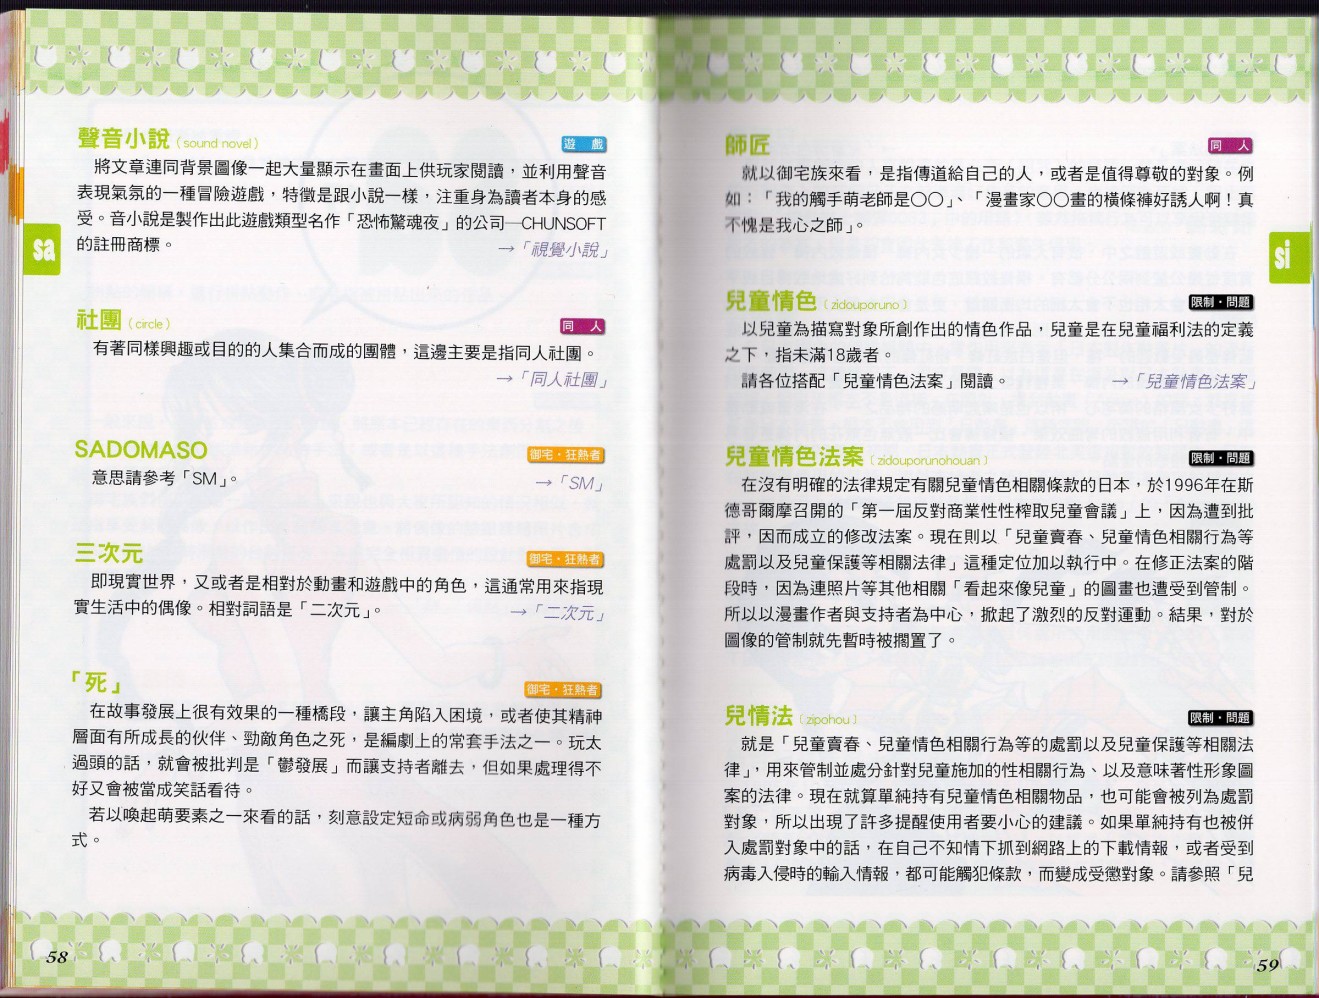 聲音小說〔sound novel〕
遊 戲
將文章連同背景圖像一起大量顯示在畫面上供玩家閱讀，並利用聲音
表現氣氛的一種冒險遊戲，特徵是跟小說一樣，注重身為讀者本身的感
受。音小說是製作出此遊戲類型名作「恐怖驚魂夜」的公司—CHUNSOFT
的註冊商標。
→「視覺小說」
sa
社團〔circle〕
同 人
有著同樣興趣或目的的人集合而成的團體，這邊主要是指同人社團。
→「同人社團」
SADOMASO
御宅・狂熱者
意思請參考「SM」。
→「SM」
三次元
御宅・狂熱者
即現實世界，又或者是相對於動畫和遊戲中的角色，這通常用來指現
實生活中的偶像。相對詞語是「二次元」。
→「二次元」
「死」
御宅・狂熱者
在故事發展上很有效果的一種橋段，讓主角陷入困境，或者使其精神
層面有所成長的伙伴、勁敵角色之死，是編劇上的常套手法之一。玩太
過頭的話，就會被批判是「鬱發展」而讓支持者離去，但如果處理得不
好又會被當成笑話看待。
若以喚起萌要素之一來看的話，刻意設定短命或病弱角色也是一種方
式。
58
師匠
同 人
就以御宅族來看，是指傳道給自己的人，或者是值得尊敬的對象。例
如：「我的觸手萌老師是○○」、「漫畫家○○畫的橫條褲好誘人啊！真
不愧是我心之師」。
si
兒童情色〔zidouporuno〕
限制・問題
以兒童為描寫對象所創作出的情色作品，兒童是在兒童福利法的定義
之下，指未滿18歲者。
請各位搭配「兒童情色法案」閱讀。
→「兒童情色法案」
兒童情色法案〔zidouporunohouan〕
限制・問題
在沒有明確的法律規定有關兒童情色相關條款的日本，於1996年在斯
德哥爾摩召開的「第一屆反對商業性性榨取兒童會議」上，因為遭到批
評，因而成立的修改法案。現在則以「兒童賣春、兒童情色相關行為等
處罰以及兒童保護等相關法律」這種定位加以執行中。在修正法案的階
段時，因為連照片等其他相關「看起來像兒童」的圖畫也遭受到管制。
所以以漫畫作者與支持者為中心，掀起了激烈的反對運動。結果，對於
圖像的管制就先暫時被擱置了。
兒情法〔zipohou〕
限制・問題
就是「兒童賣春、兒童情色相關行為等的處罰以及兒童保護等相關法
律」，用來管制並處分針對兒童施加的性相關行為、以及意味著性形象圖
案的法律。現在就算單純持有兒童情色相關物品，也可能會被列為處罰
對象，所以出現了許多提醒使用者要小心的建議。如果單純持有也被併
入處罰對象中的話，在自己不知情下抓到網路上的下載情報，或者受到
病毒入侵時的輸入情報，都可能觸犯條款，而變成受懲對象。請參照「兒
59